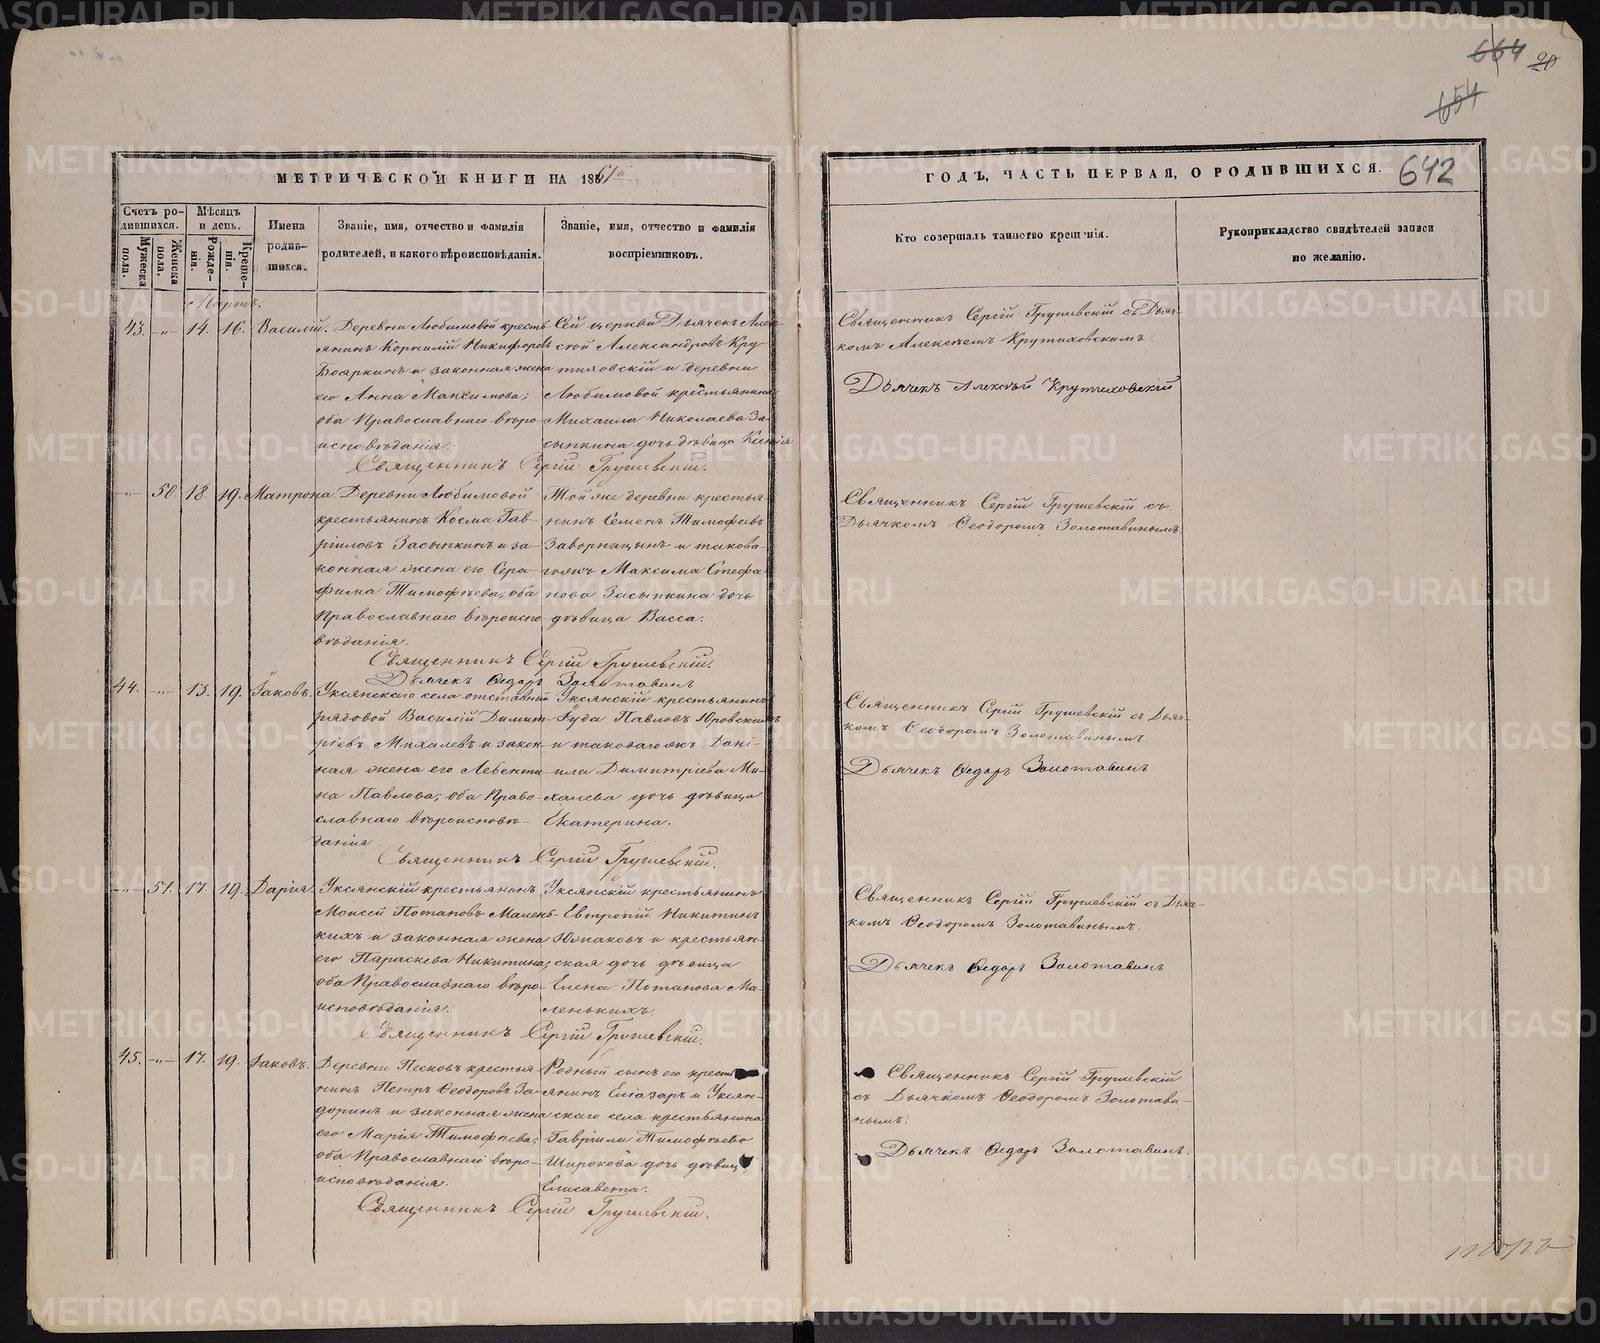 664 20
654
МЕТРИЧЕСКОЙ КНИГИ НА 1861й
ГОДЪ, ЧАСТЬ ПЕРВАЯ, О РОДИВШИХСЯ.
642
Счетъ ро-
дившихся.
Мужеска пола.
Женска пола.
Мѣсяцъ
и день.
Рожде-
нія.
Креще-
нія.
Имена
родив-
шихся.
Званіе, имя, отчество и фамилія
родителей, и какого вѣроисповѣданія.
Званіе, имя, отчество и фамилія
воспріемниковъ.
Кто совершалъ таинство крещенія.
Рукоприкладство свидѣтелей записи
по желанію.
Мартъ.
43. -"- 14. 16. Василій.
Деревни Любимовой кресть
янинъ Корнилій Никифоровъ
Бояркинъ и законная жена
его Анна Максимова;
оба Православнаго вѣро-
исповѣданія.
Сей церкви Дьячекъ Алек
сѣй Александровъ Кру
тиховскій и деревни
Любимовой крестьянина
Михаила Николаева За-
сыпкина дочь дѣвица Ксенія.
Священникъ Сергій Грушевскій.
Священникъ Сергій Грушевскій съ Дьяч-
комъ Алексѣемъ Крутиховскимъ.
Дьячекъ Алексѣй Крутиховскій
-"- 50. 18. 19. Матрона.
Деревни Любимовой
крестьянинъ Косма Гав-
ріиловъ Засыпкинъ и за-
конная жена его Сера-
фима Тимофѣева; оба
Православнаго вѣроиспо-
вѣданія.
Той же деревни крестья
нинъ Семенъ Тимофеевъ
Заворницынъ и таково-
гожъ Максима Стефа-
нова Засыпкина дочь
дѣвица Васса.
Священникъ Сергій Грушевскій.
Дьячекъ Ѳедоръ Золотавинъ
Священникъ Сергій Грушевскій съ
Дьячкомъ Ѳеодоромъ Золотавинымъ.
44. -"- 13. 19. Іаковъ.
Уксянскаго села отставной
рядовой Василій Димит-
ріевъ Михалевъ и закон-
ная жена его Левенти-
на Павлова; оба Право-
славнаго вѣроисповѣ-
данія.
Уксянскій крестьянинъ
Іуда Павловъ Юровскихъ
и таковагожъ Дані-
ила Димитріева Ми-
халева дочь дѣвица
Екатерина.
Священникъ Сергій Грушевскій.
Священникъ Сергій Грушевскій съ Дьяч-
комъ Ѳеодоромъ Золотавинымъ.
Дьячекъ Ѳедоръ Золотавинъ
-"- 51. 17. 19. Дарія.
Уксянскій крестьянинъ
Моисей Потаповъ Малень-
кихъ и законная жена
его Параскева Никитина;
оба Православнаго вѣро-
исповѣданія.
Уксянскій крестьянинъ
Евтропій Никитинъ
Южаковъ и крестьян-
ская дочь дѣвица
Елена Потапова Ма-
ленькихъ.
Священникъ Сергій Грушевскій.
Священникъ Сергій Грушевскій съ Дьяч-
комъ Ѳеодоромъ Золотавинымъ.
Дьячекъ Ѳедоръ Золотавинъ
45. -"- 17. 19. Іаковъ.
Деревни Песковъ крестья
нинъ Петръ Ѳеодоровъ За-
доринъ и законная жена
его Марія Тимофѣева;
оба Православнаго вѣро-
исповѣданія.
Родный сынъ его кресть
янинъ Еліазаръ и Уксян-
скаго села крестьянина
Гавріила Тимофѣева
Широкова дочь дѣвица
Елисавета.
Священникъ Сергій Грушевскій.
Священникъ Сергій Грушевскій
съ Дьячкомъ Ѳеодоромъ Золотави-
нымъ.
Дьячекъ Ѳедоръ Золотавинъ.
METRIKI.GASO-URAL.RU